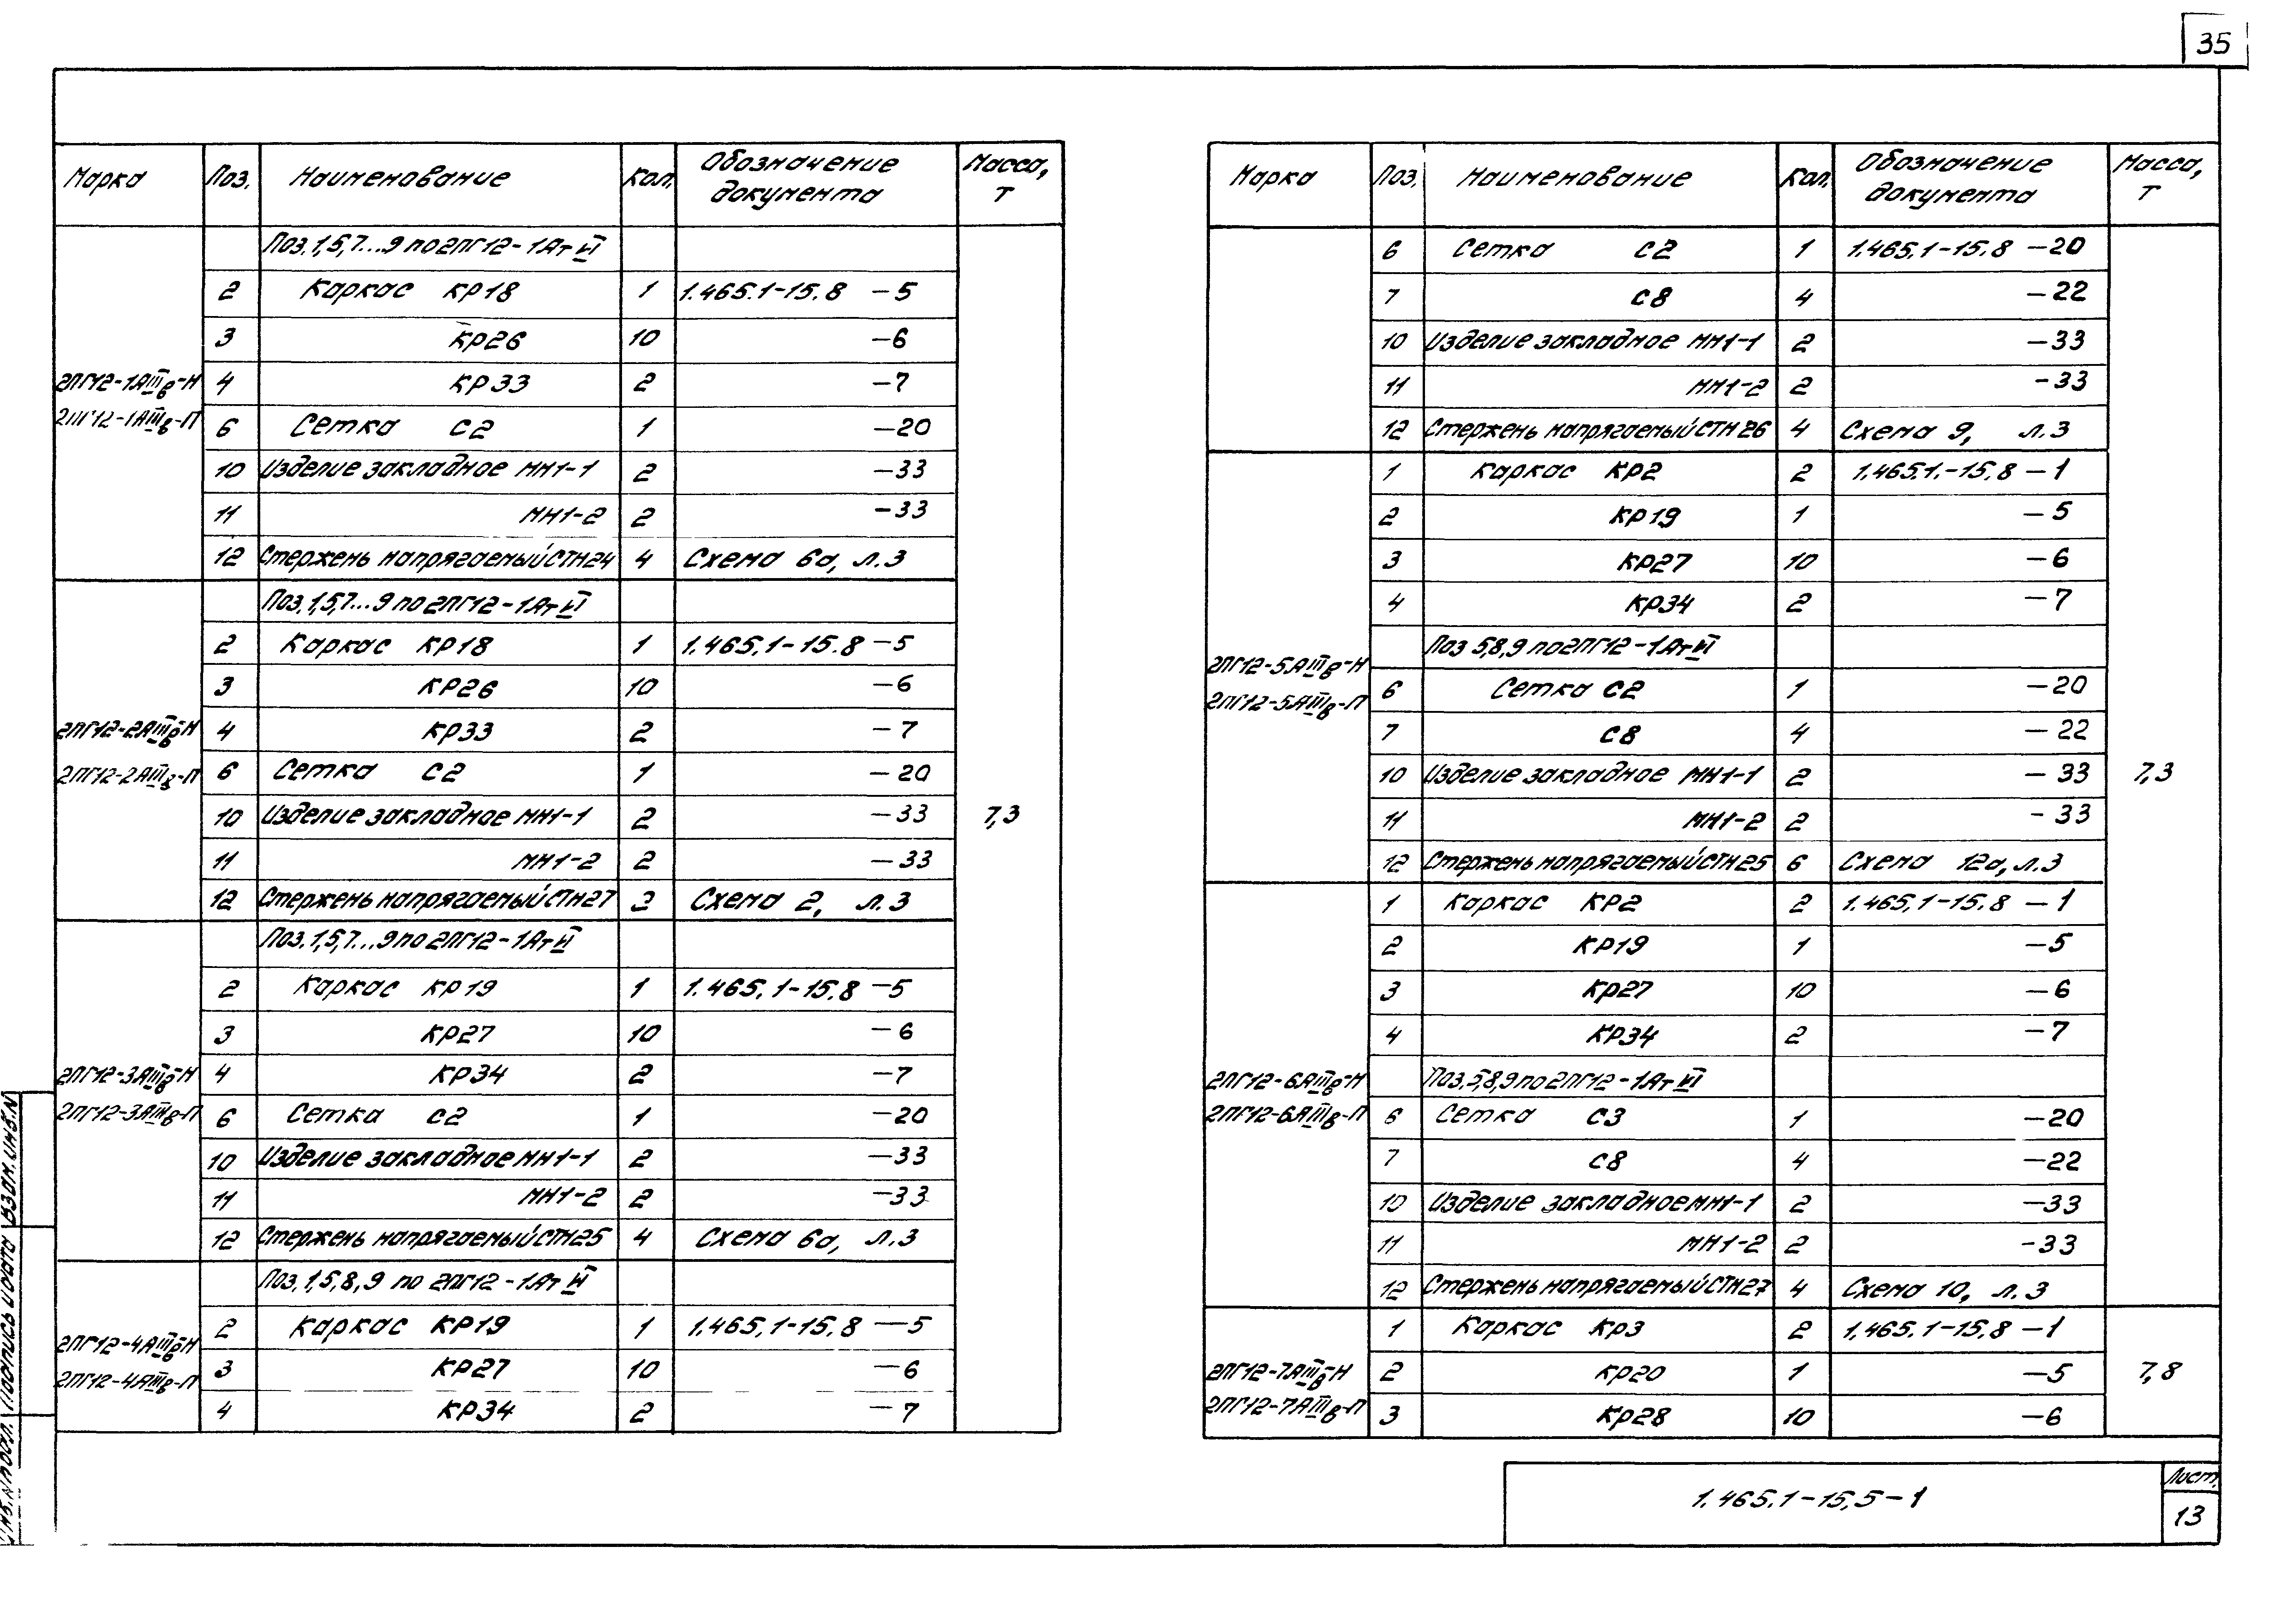 35
Марка Поз. Наименование Кол. Обозначение документа Масса, т
Поз. 1,5,7...9 по 2ПГ12-1АтVI
2 Каркас КР18 1 1.465.1-15.8 -5
3 КР26 10 -6
2ПГ12-1АIIIв-Н 4 КР33 2 -7
2ПГ12-1АIIIв-П 6 Сетка С2 1 -20
10 Изделие закладное МН1-1 2 -33
11 МН1-2 2 -33
12 Стержень напрягаемый СТН24 4 Схема 6а, л.3
Поз. 1,5,7...9 по 2ПГ12-1АтVI
2 Каркас КР18 1 1.465.1-15.8 -5
3 КР26 10 -6
2ПГ12-2АIIIв-Н 4 КР33 2 -7
2ПГ12-2АIIIв-П 6 Сетка С2 1 -20
10 Изделие закладное МН1-1 2 -33 7,3
11 МН1-2 2 -33
12 Стержень напрягаемый СТН27 Схема 2, л.3
Поз. 1,5,7...9 по 2ПГ12-1АтVI
2 Каркас КР19 1 1.465.1-15.8 -5
3 КР27 10 -6
2ПГ12-3АIIIв-Н 4 КР34 2 -7
2ПГ12-3АIIIв-П 6 Сетка С2 1 -20
10 Изделие закладное МН1-1 2 -33
11 МН1-2 2 -33
12 Стержень напрягаемый СТН25 4 Схема 6а, л.3
Поз. 1,5,8,9 по 2ПГ12-1АтVI
2ПГ12-4АIIIв-Н 2 Каркас КР19 1 1.465.1-15.8 -5
2ПГ12-4АIIIв-П 3 КР27 10 -6
4 КР34 2 -7
Марка Поз. Наименование Кол. Обозначение документа Масса, т
6 Сетка С2 1 1.465.1-15.8 -20
7 С8 4 -22
10 Изделие закладное МН1-1 2 -33
11 МН1-2 2 -33
12 Стержень напрягаемый СТН26 4 Схема 9, л.3
1 Каркас КР2 2 1.465.1.-15.8 -1
2 КР19 1 -5
3 КР27 10 -6
4 КР34 2 -7
2ПГ12-5АIIIв-Н Поз 5,8,9 по 2ПГ12-1АтVI
2ПГ12-5АIIIв-П 6 Сетка С2 1 -20
7 С8 4 -22
10 Изделие закладное МН1-1 2 -33 7,3
11 МН1-2 2 -33
12 Стержень напрягаемый СТН25 6 Схема 12а, л.3
1 Каркас КР2 2 1.465.1-15.8 -1
2 КР19 1 -5
3 КР27 10 -6
4 КР34 2 -7
2ПГ12-6АIIIв-Н Поз. 5,8,9 по 2ПГ12-1АтVI
2ПГ12-6АIIIв-П 6 Сетка С3 1 -20
7 С8 4 -22
10 Изделие закладное МН1-1 2 -33
11 МН1-2 2 -33
12 Стержень напрягаемый СТН27 4 Схема 10, л.3
1 Каркас КР3 2 1.465.1-15.8 -1
2ПГ12-7АIIIв-Н 2 КР20 1 -5 7,8
2ПГ12-7АIIIв-П 3 КР28 10 -6
Инв.N подл. Подпись и дата Взам.инв.N
1.465.1-15.5-1
Лист
13